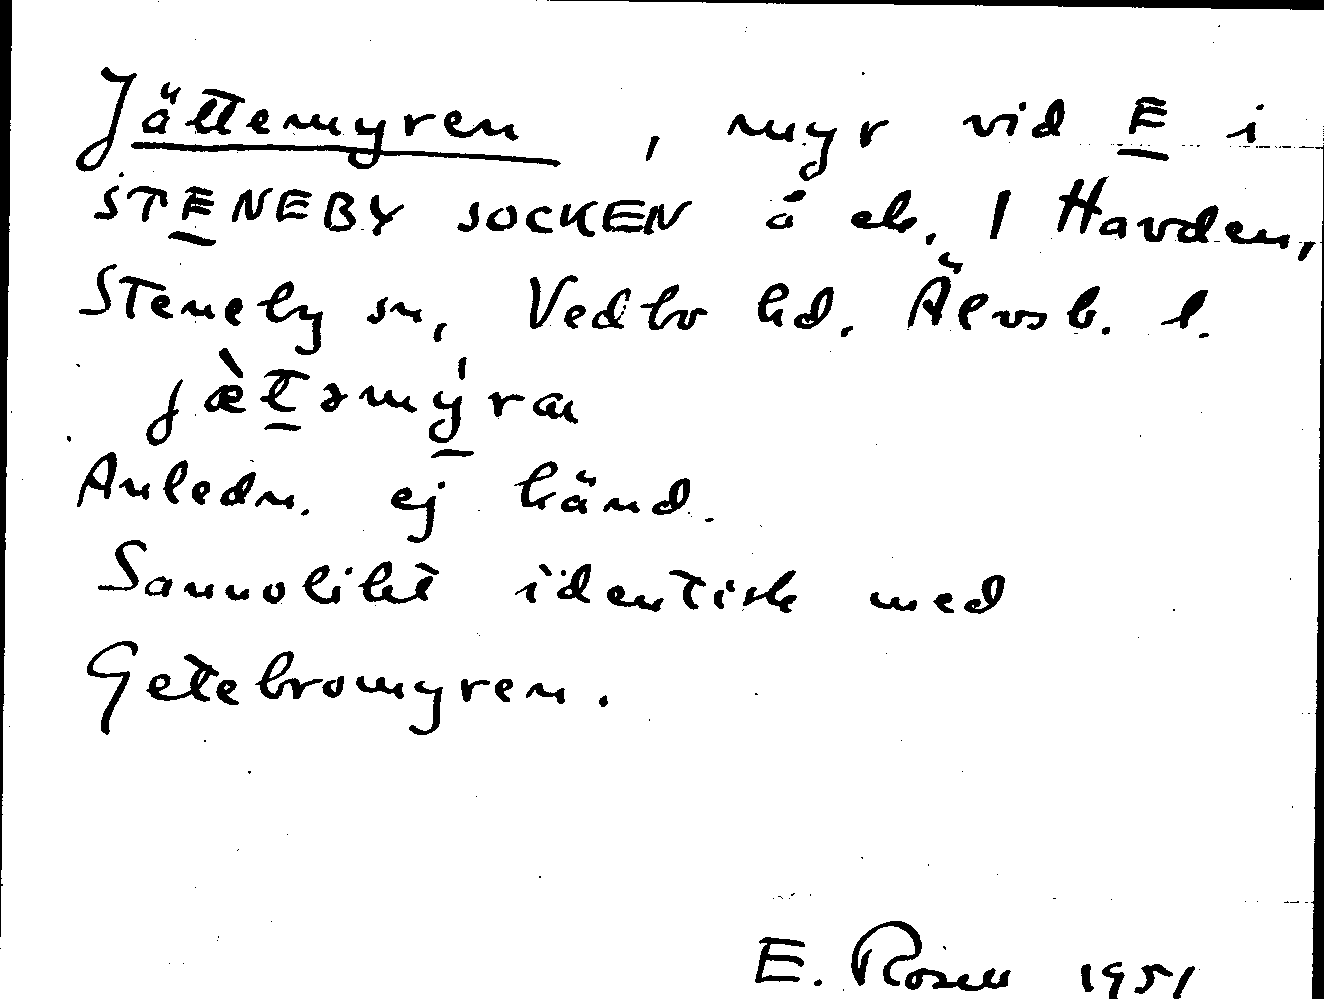 Jättemyren, myr vid E i
STENEBY SOCKEN å ek. 1 Havden,
Steneby sn, Vedbo hd. Älvsb. l.
jæ̀təmýra
Anledn. ej känd.
Sannolikt identisk med
Getebromyren.
E. Rosell 1951